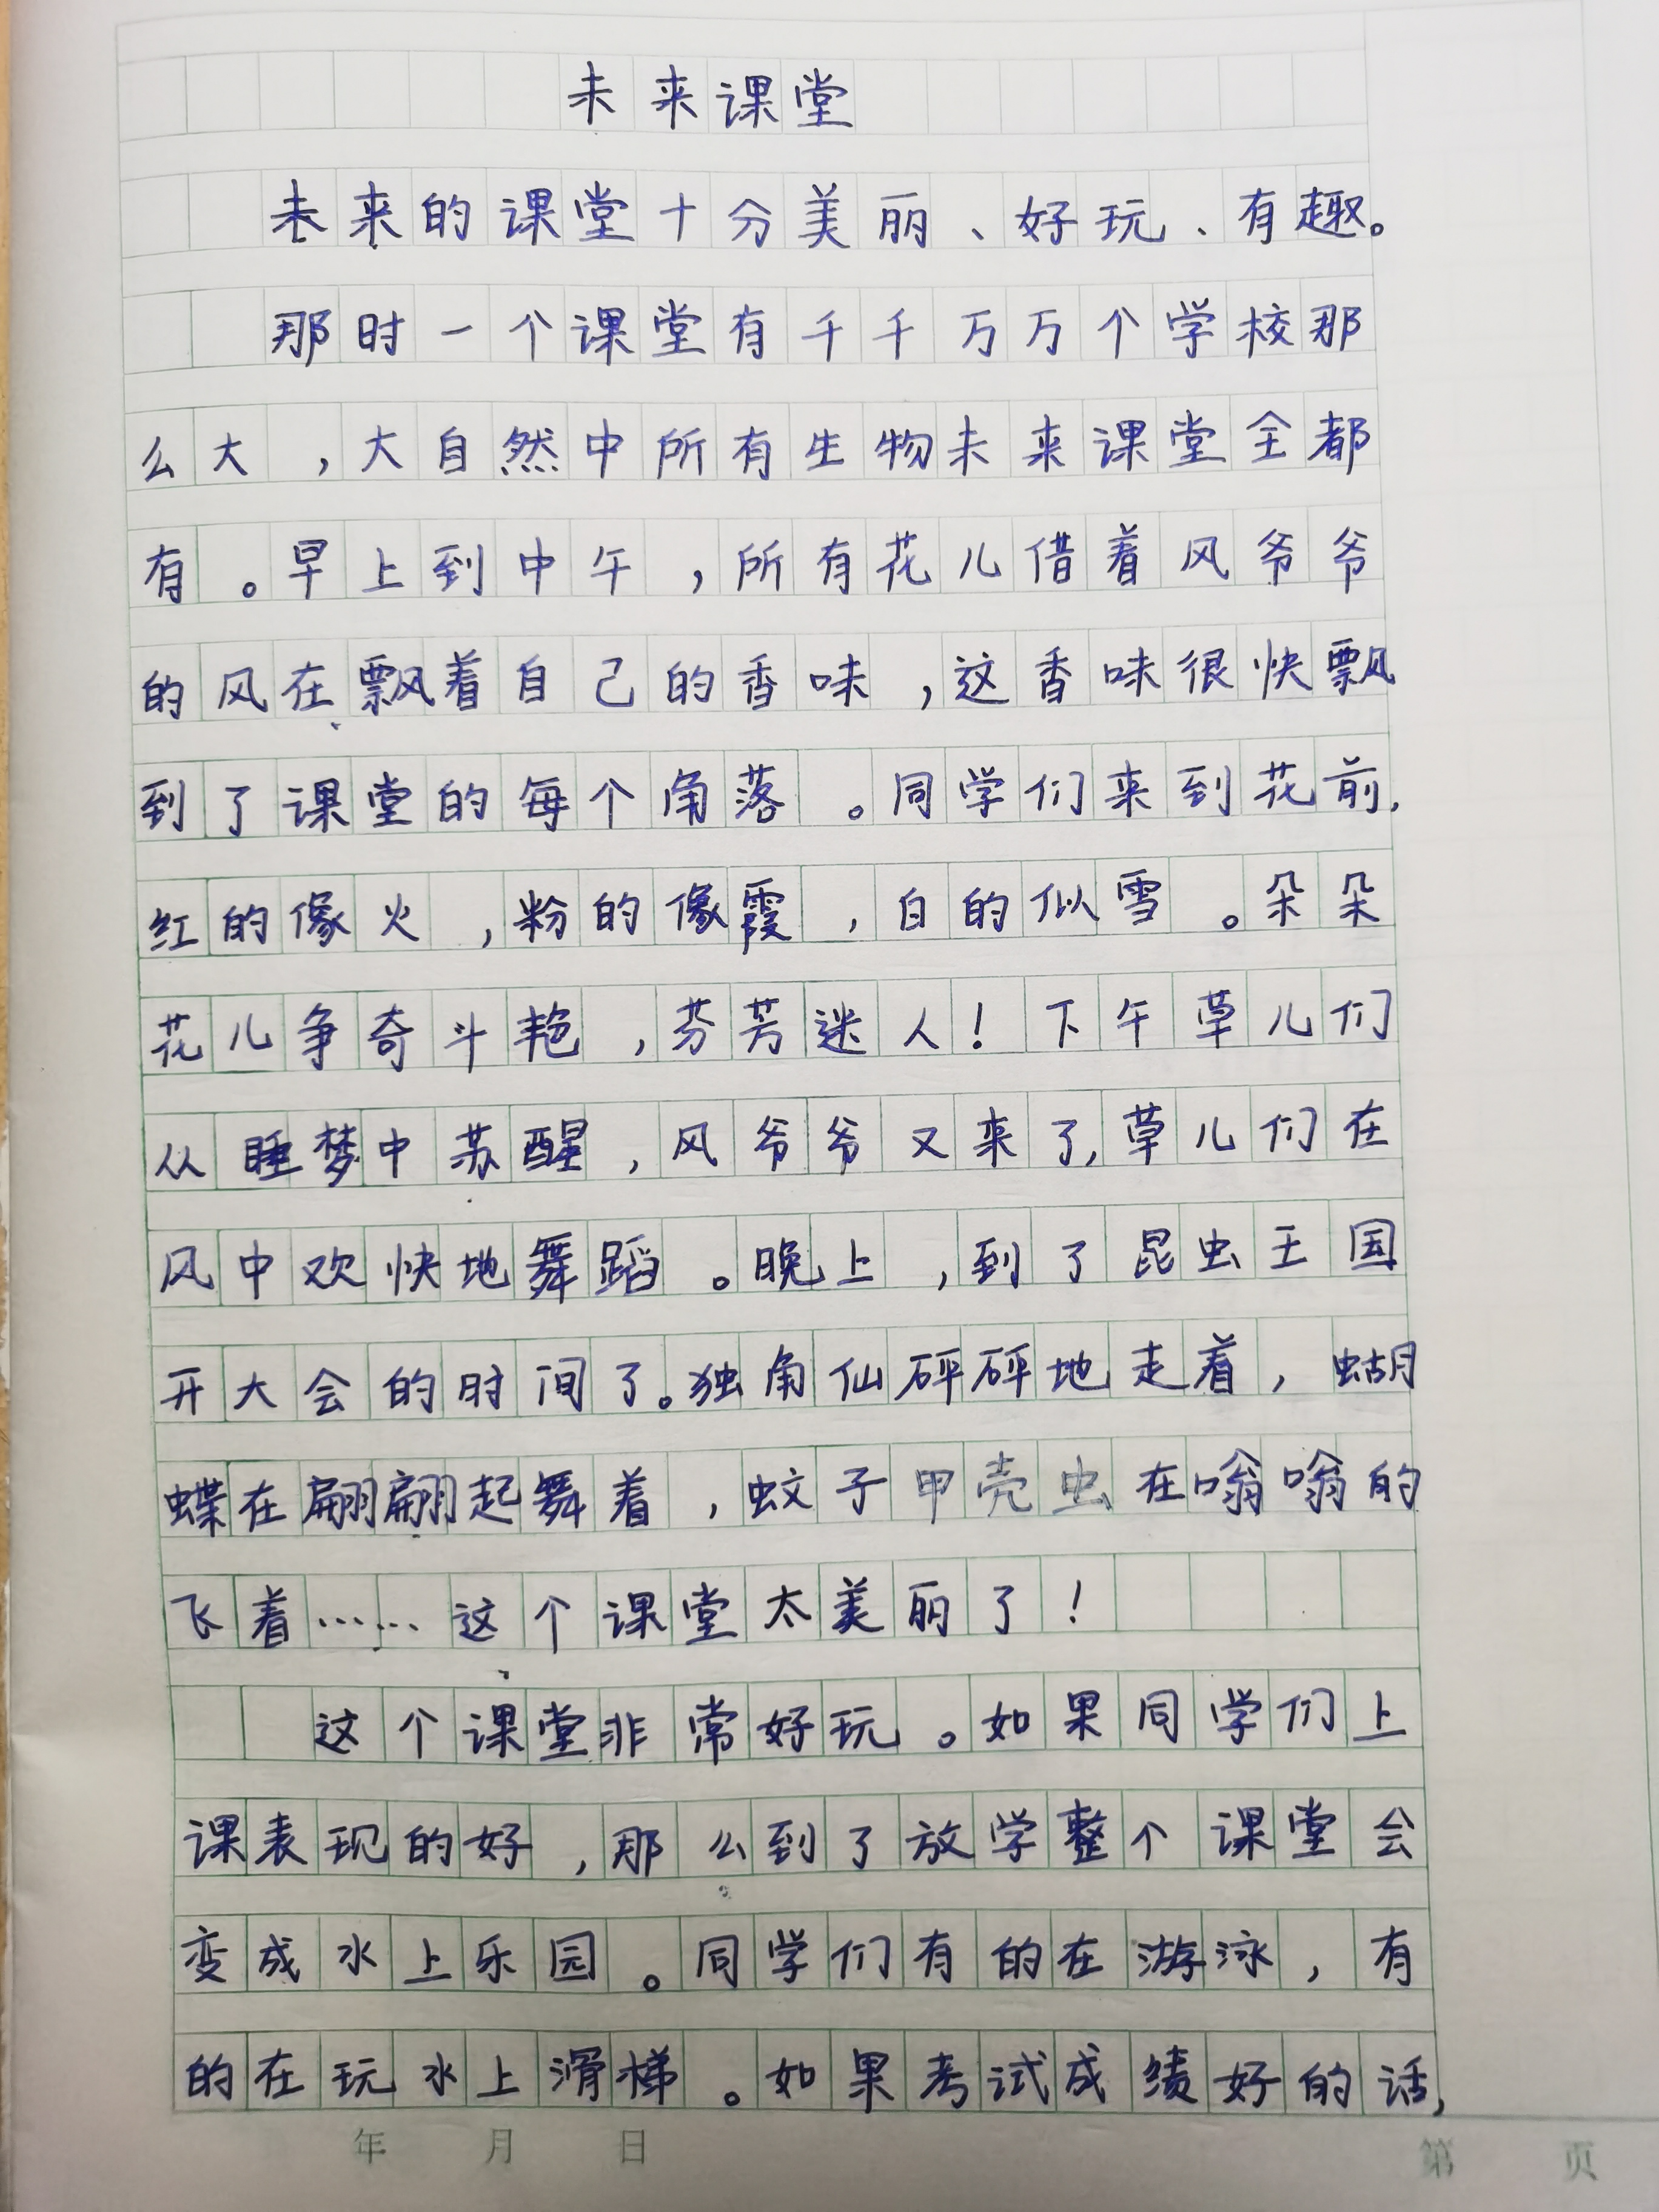 未来课堂
未来的课堂十分美丽、好玩、有趣。
那时一个课堂有千千万万个学校那
么大，大自然中所有生物未来课堂全都
有。早上到中午，所有花儿借着风爷爷
的风在飘着自己的香味，这香味很快飘
到了课堂的每个角落。同学们来到花前，
红的像火，粉的像霞，白的似雪。朵朵
花儿争奇斗艳，芬芳迷人！下午草儿们
从睡梦中苏醒，风爷爷又来了，草儿们在
风中欢快地舞蹈。晚上，到了昆虫王国
开大会的时间了。独角仙砰砰地走着，蝴
蝶在翩翩起舞着，蚊子甲壳虫在嗡嗡的
飞着……这个课堂太美丽了！
这个课堂非常好玩。如果同学们上
课表现的好，那么到了放学整个课堂会
变成水上乐园。同学们有的在游泳，有
的在玩水上滑梯。如果考试成绩好的话，
年 月 日 第 页